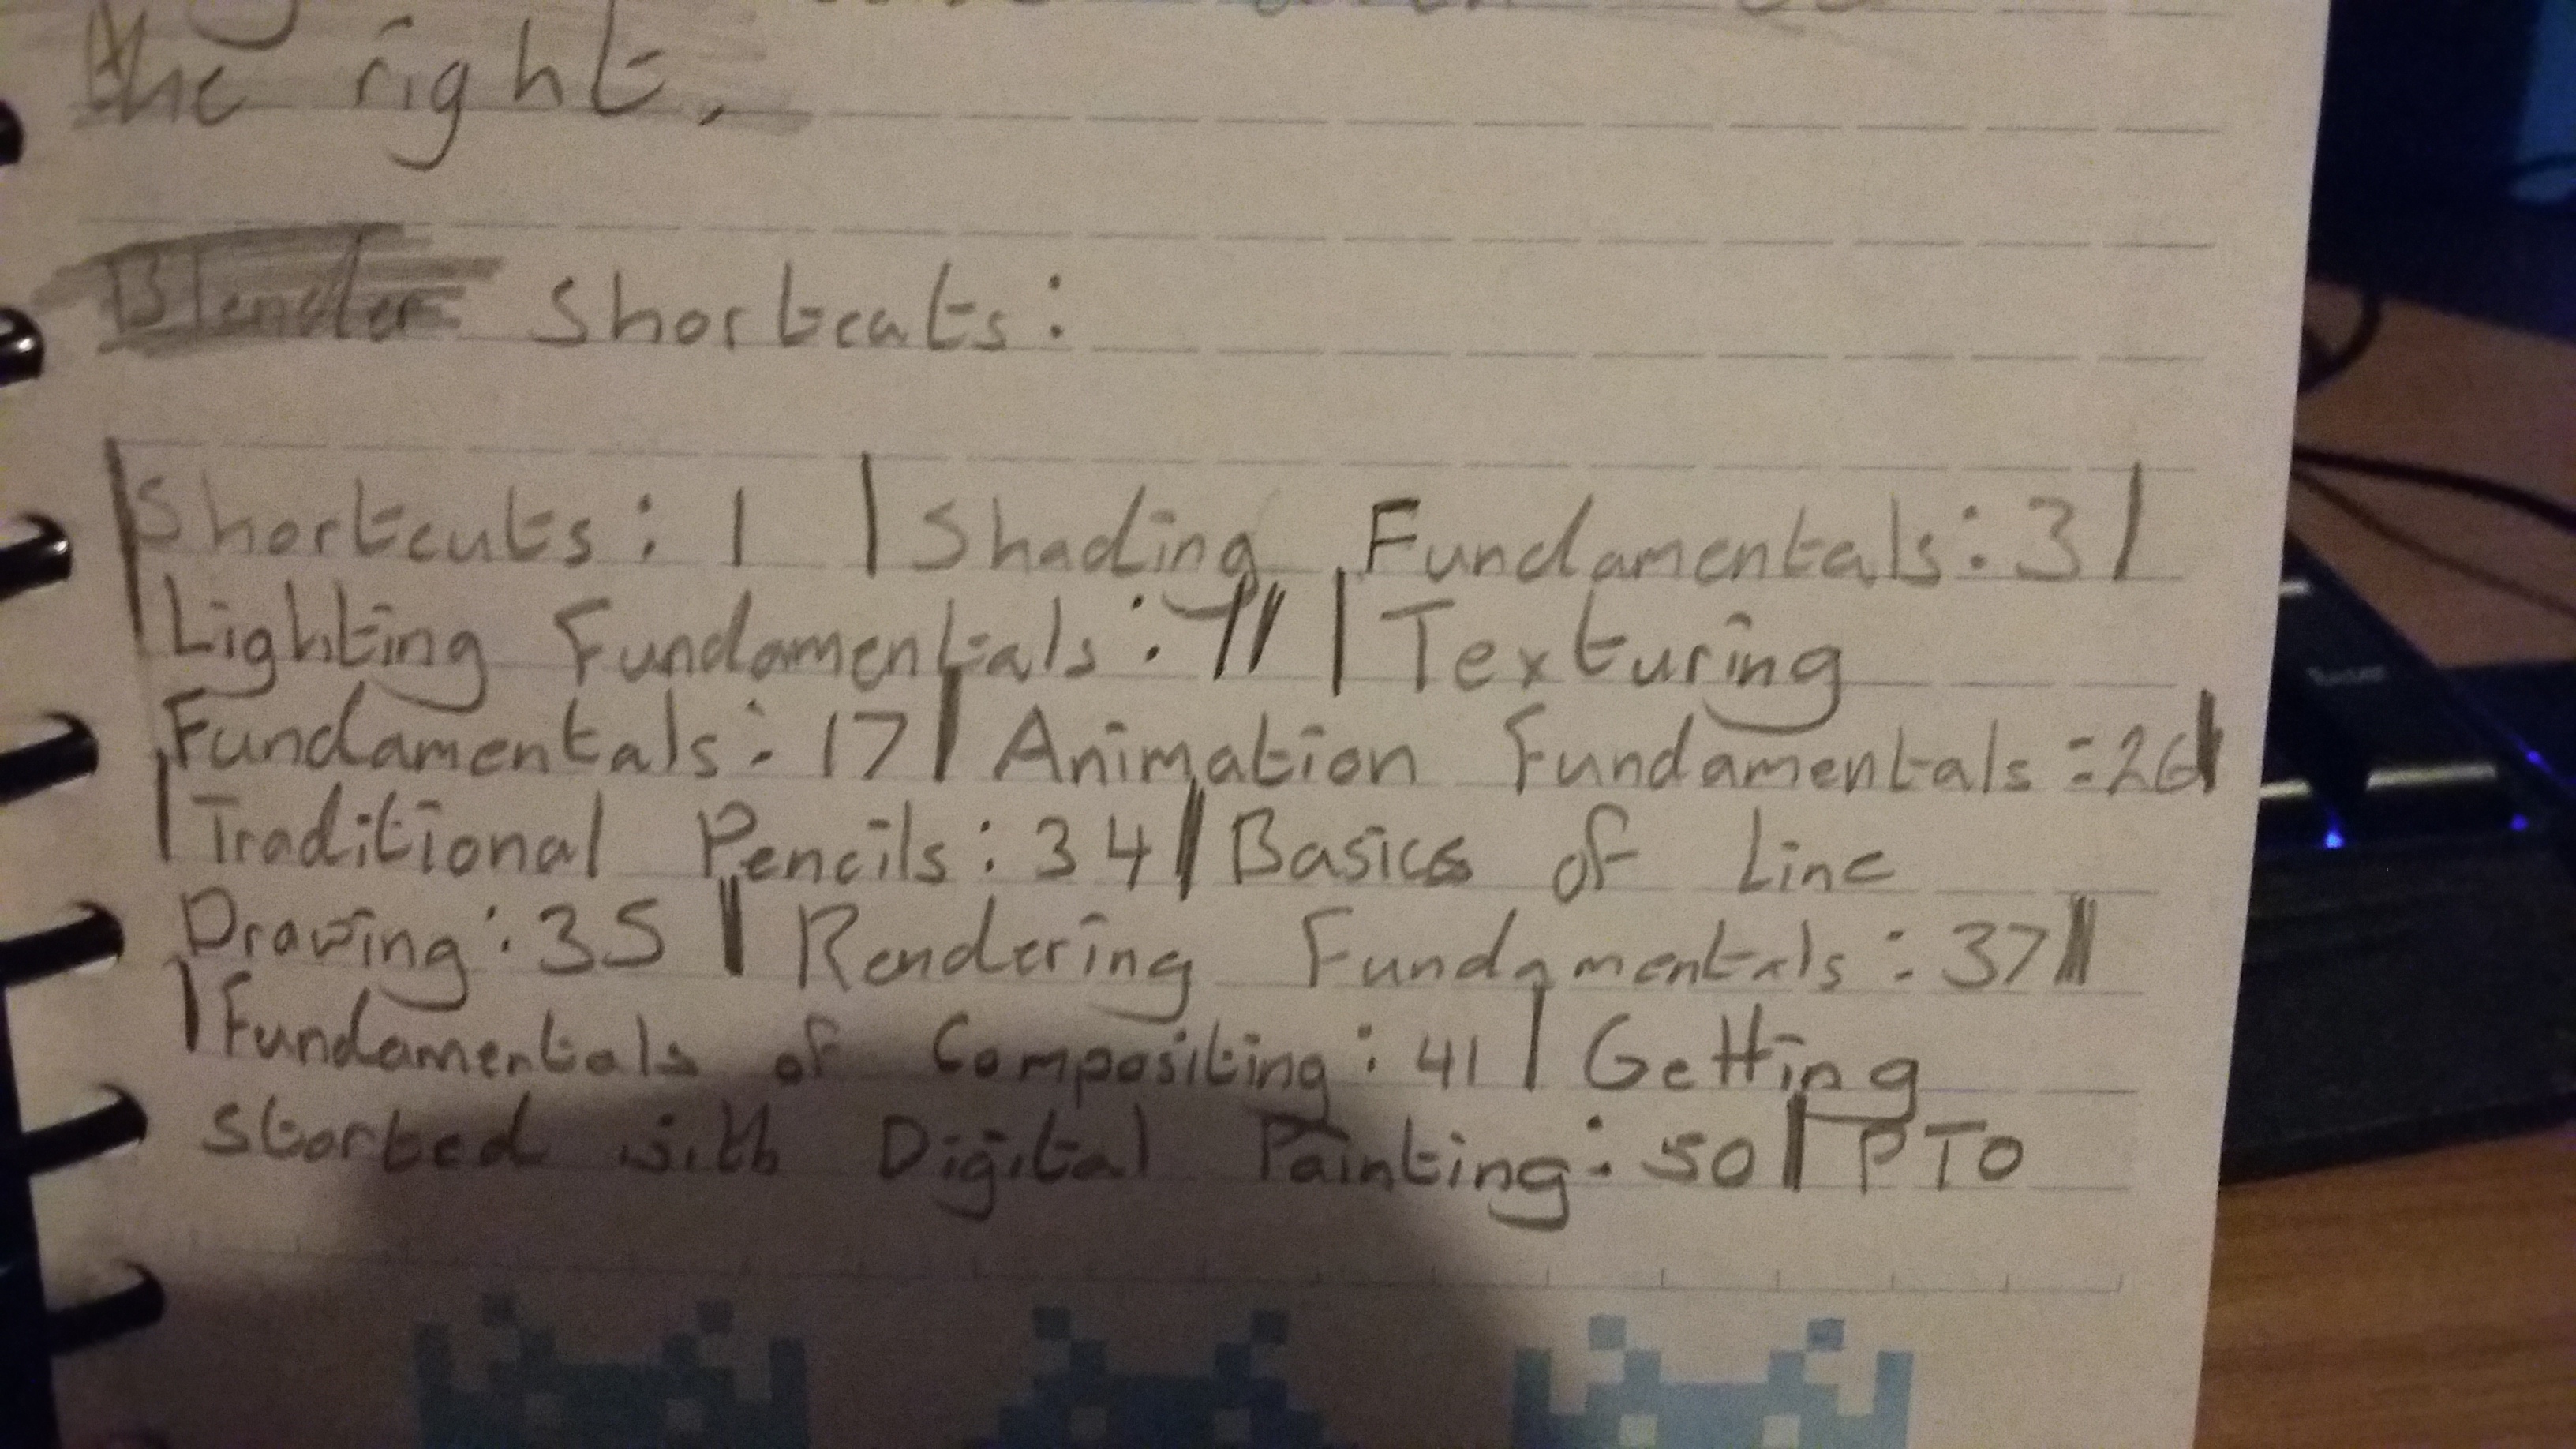 the right.
Blender Shortcuts:
Shortcuts: 1 | Shading Fundamentals: 3 |
Lighting Fundamentals: 11 | Texturing
Fundamentals: 17 | Animation Fundamentals: 26 |
| Traditional Pencils: 34 | Basics of Line
Drawing: 35 | Rendering Fundamentals: 37 |
| Fundamentals of Compositing: 41 | Getting
Started with Digital Painting: 50 | PTO